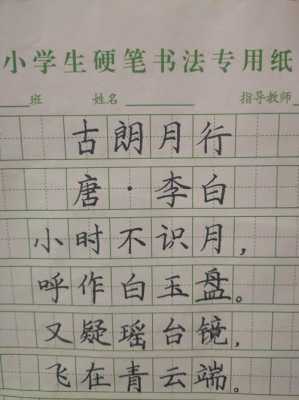 小学生硬笔书法专用纸
班 姓名 指导教师
古朗月行
唐·李白
小时不识月，
呼作白玉盘。
又疑瑶台镜，
飞在青云端。